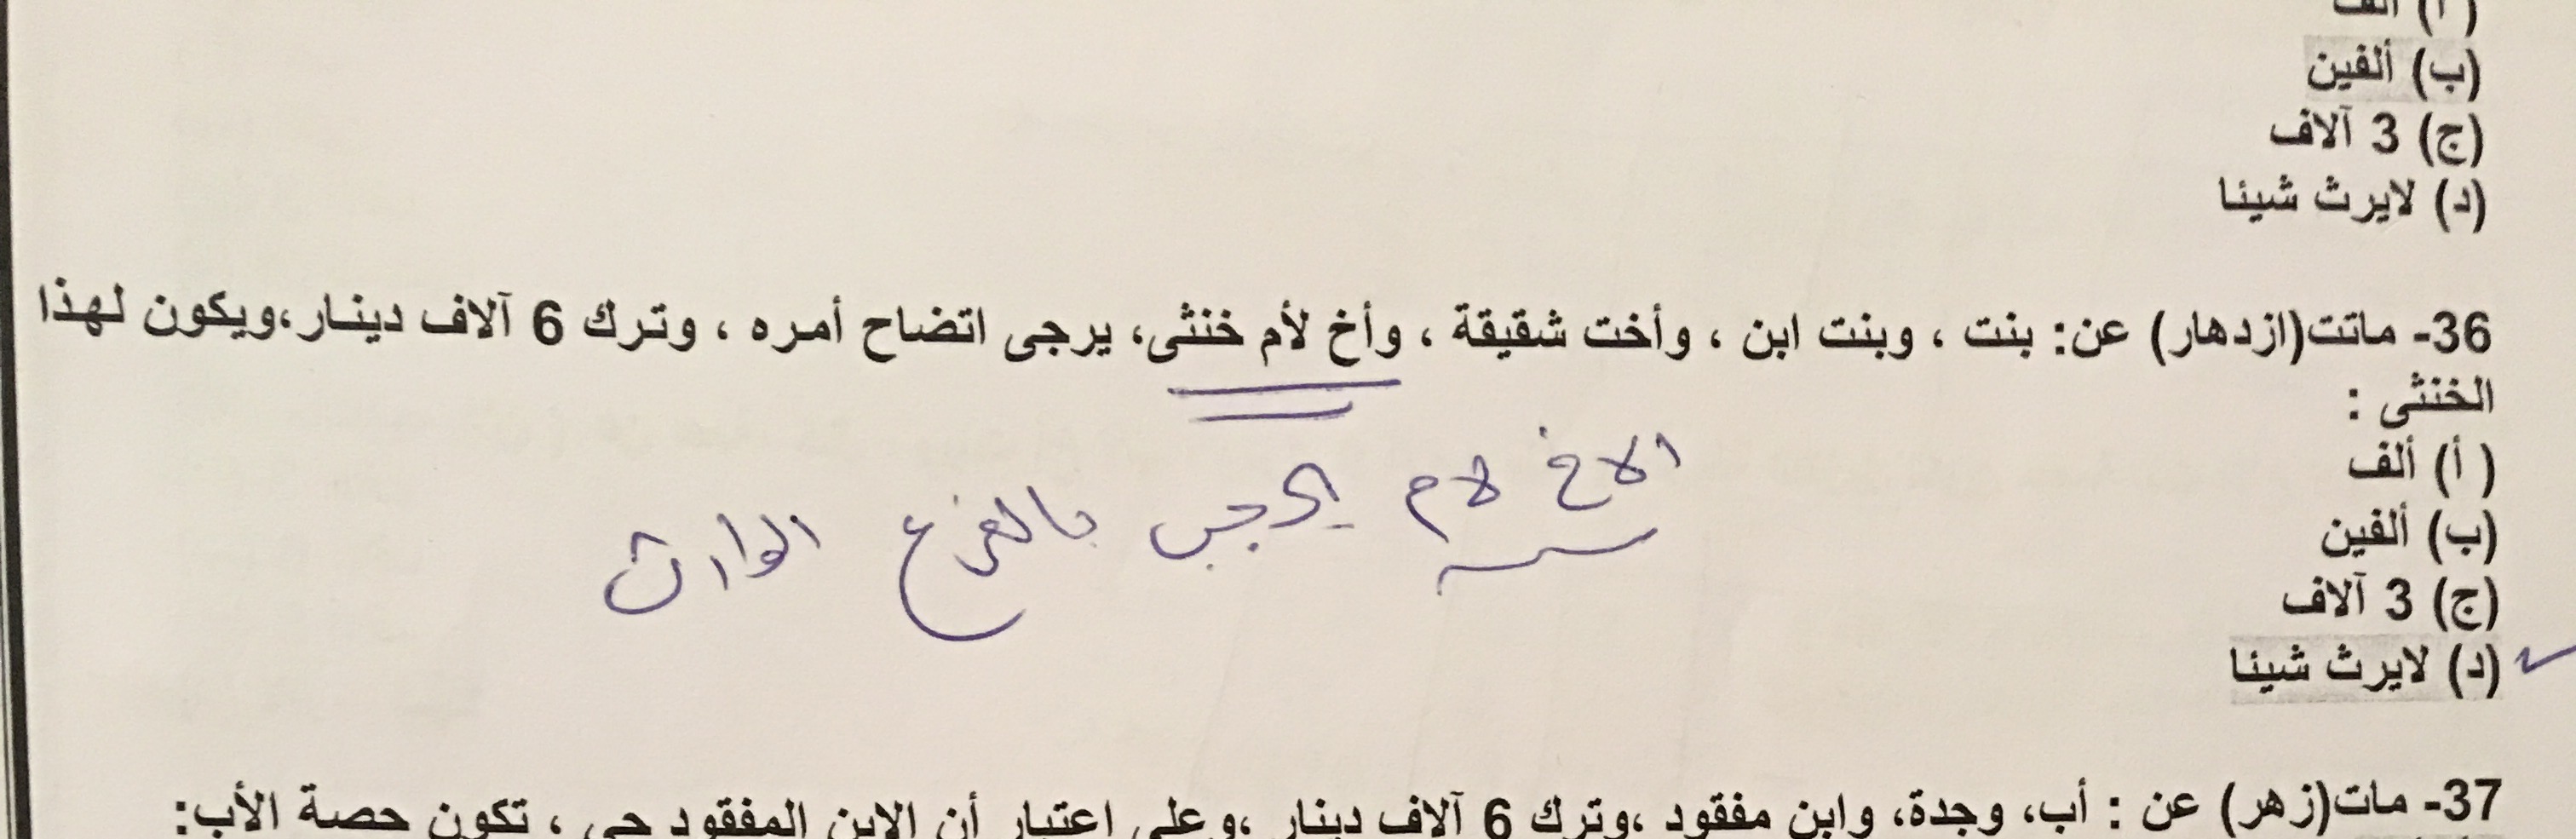 (أ) ألف
(ب) ألفين
(ج) 3 آلاف
(د) لايرث شيئا
36- ماتت(ازدهار) عن: بنت ، وبنت ابن ، وأخت شقيقة ، وأخ لأم خنثى، يرجى اتضاح أمره ، وترك 6 آلاف دينار،ويكون لهذا
الخنثى :
( أ) ألف
(ب) ألفين
(ج) 3 آلاف
(د) لايرث شيئا
الاخ لام يحجب بالفرع الوارث
37- مات(زهر) عن : أب، وجدة، وابن مفقود ،وترك 6 آلاف دينار ،وعلى اعتبار أن الابن المفقود حي ، تكون حصة الأب: